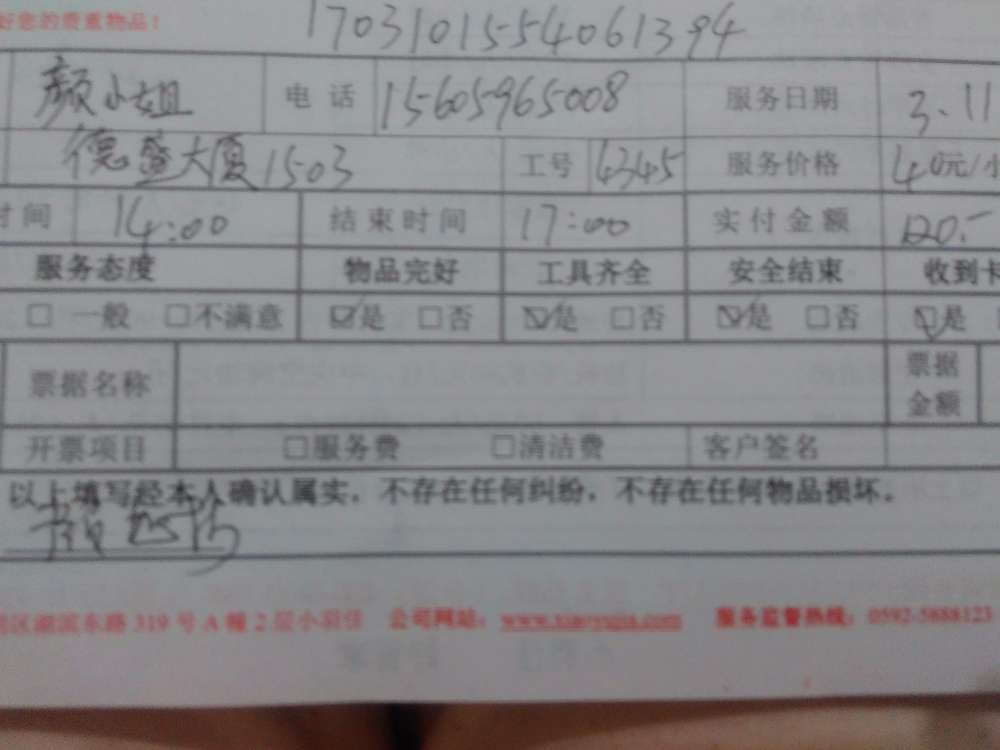 好您的贵重物品！
1703101554061394
颜小姐 电话 15605965008 服务日期 3.11
德盛大厦1503 工号 4345 服务价格 40元/小
时间 14:00 结束时间 17:00 实付金额 120.-
服务态度 物品完好 工具齐全 安全结束 收到卡
□ 一般 □不满意 ☑是 □否 ☑是 □否 ☑是 □否 ☑是
票据名称 票据金额
开票项目 □服务费 □清洁费 客户签名
以上填写经本人确认属实，不存在任何纠纷，不存在任何物品损坏。
颜
区湖滨东路 319 号 A 幢 2 层小羽佳 公司网站：www.xiaoyujia.com 服务监督热线：0592-5888123